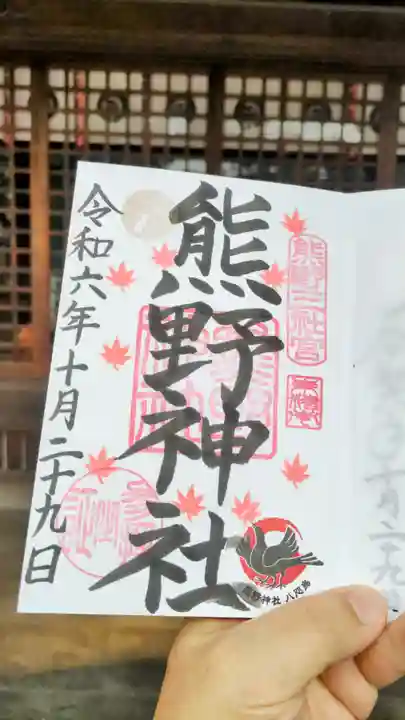 熊野三社宮
熊野神社
令和六年十月二十九日
熊野神社 八咫烏